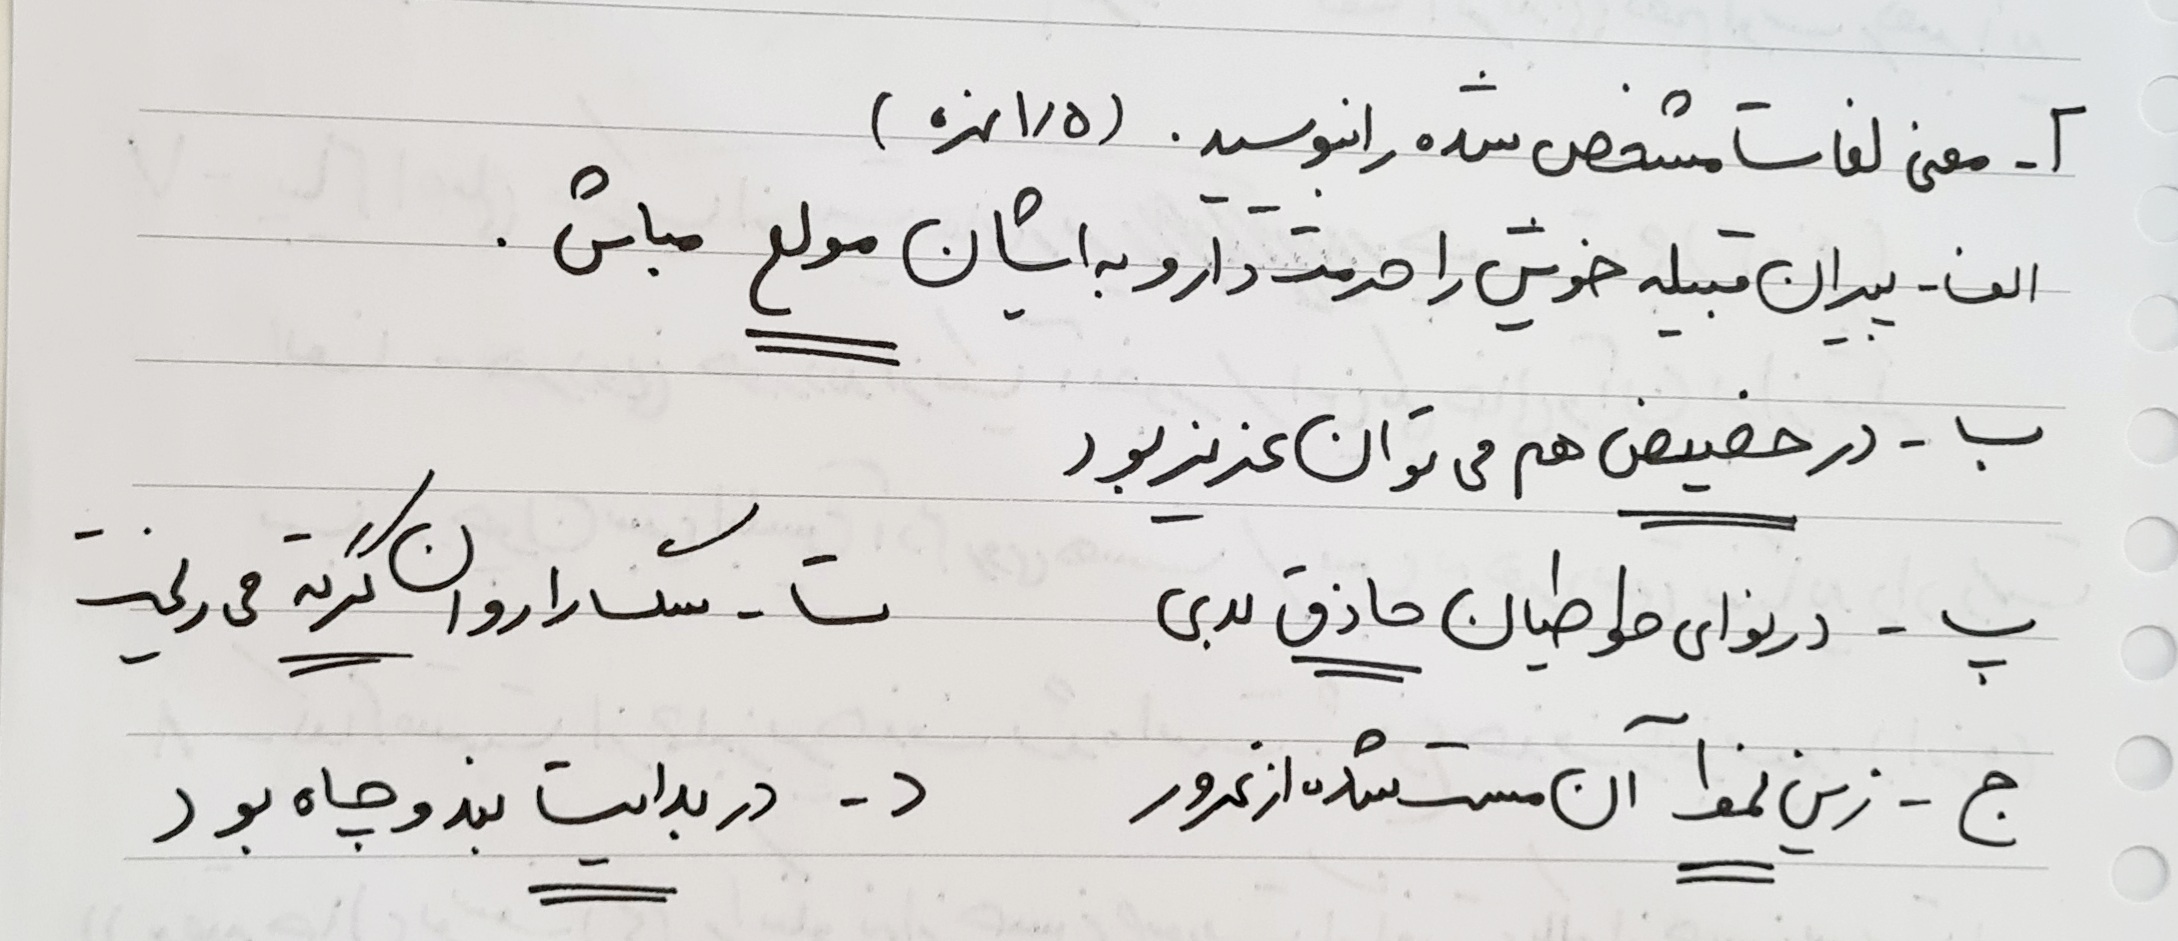 آ- معنی لغات مشخص شده را بنویسید. (۱/۵ نمره)
الف- پیران قبیله خویش را حرمت دار و به ایشان مولع مباش.
ب- در حضیض هم می توان عزیز بود
پ- در نوای طوطیان حاذق بدی ت- سنگ را روان گرته می ریخت
ج- زین نمط آن مست شده از غرور د- در بدایت بند و چاه بود